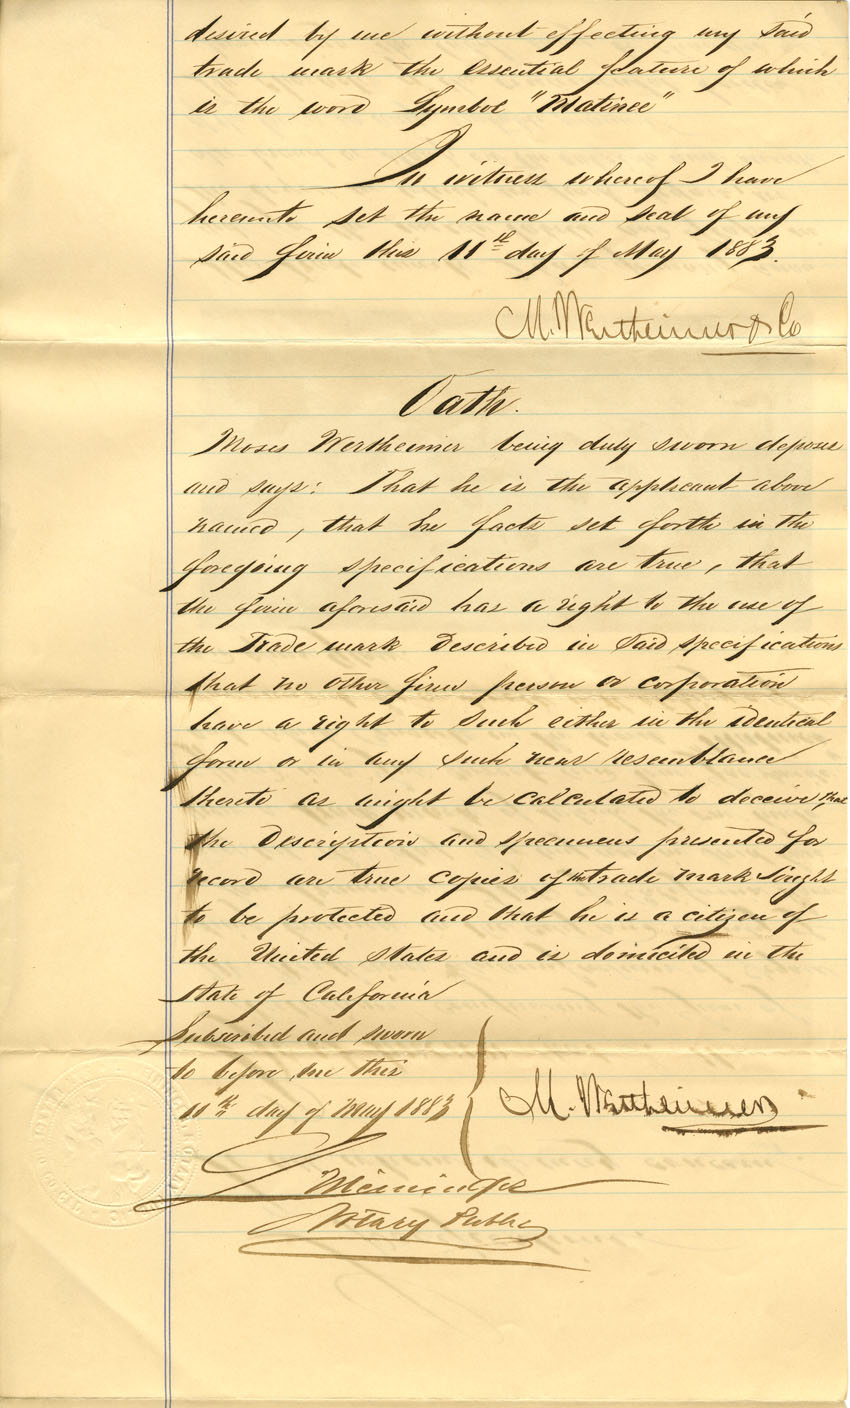 desired by me without effecting my said
trade mark the essential feature of which
is the word Symbol "Matinee"
In witness whereof I have
hereunto set the name and seal of my
said firm this 11th day of May 1883.
M. Wertheimer & Co
Oath.
Moses Wertheimer being duly sworn deposes
and says: That he is the applicant above
named, that he facts set forth in the
foregoing specifications are true, that
the firm aforesaid has a right to the use of
the Trade mark described in said specifications
that no other firm person or corporation
have a right to such either in the identical
form or in any such near resemblance
thereto as might be calculated to deceive that
the description and specimens presented for
record are true copies of the trade mark sought
to be protected and that he is a citizen of
the United States and is domiciled in the
State of California
Subscribed and sworn
to before me this
11th day of May 1883
M. Wertheimer
Notary Public